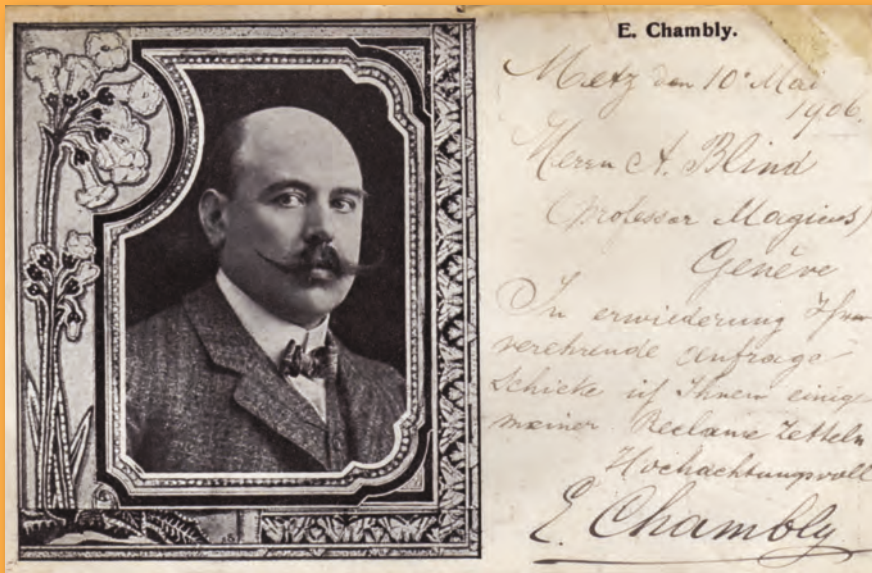 E. Chambly.
Metz den 10. Mai
1906.
Herrn A. Blind
(Professor Magicus)
Genève
In erwiederung Ihrer
verehrende anfrage
Schicke ich Ihnen einige
meiner Reclame Zetteln
Hochachtungsvoll
E. Chambly